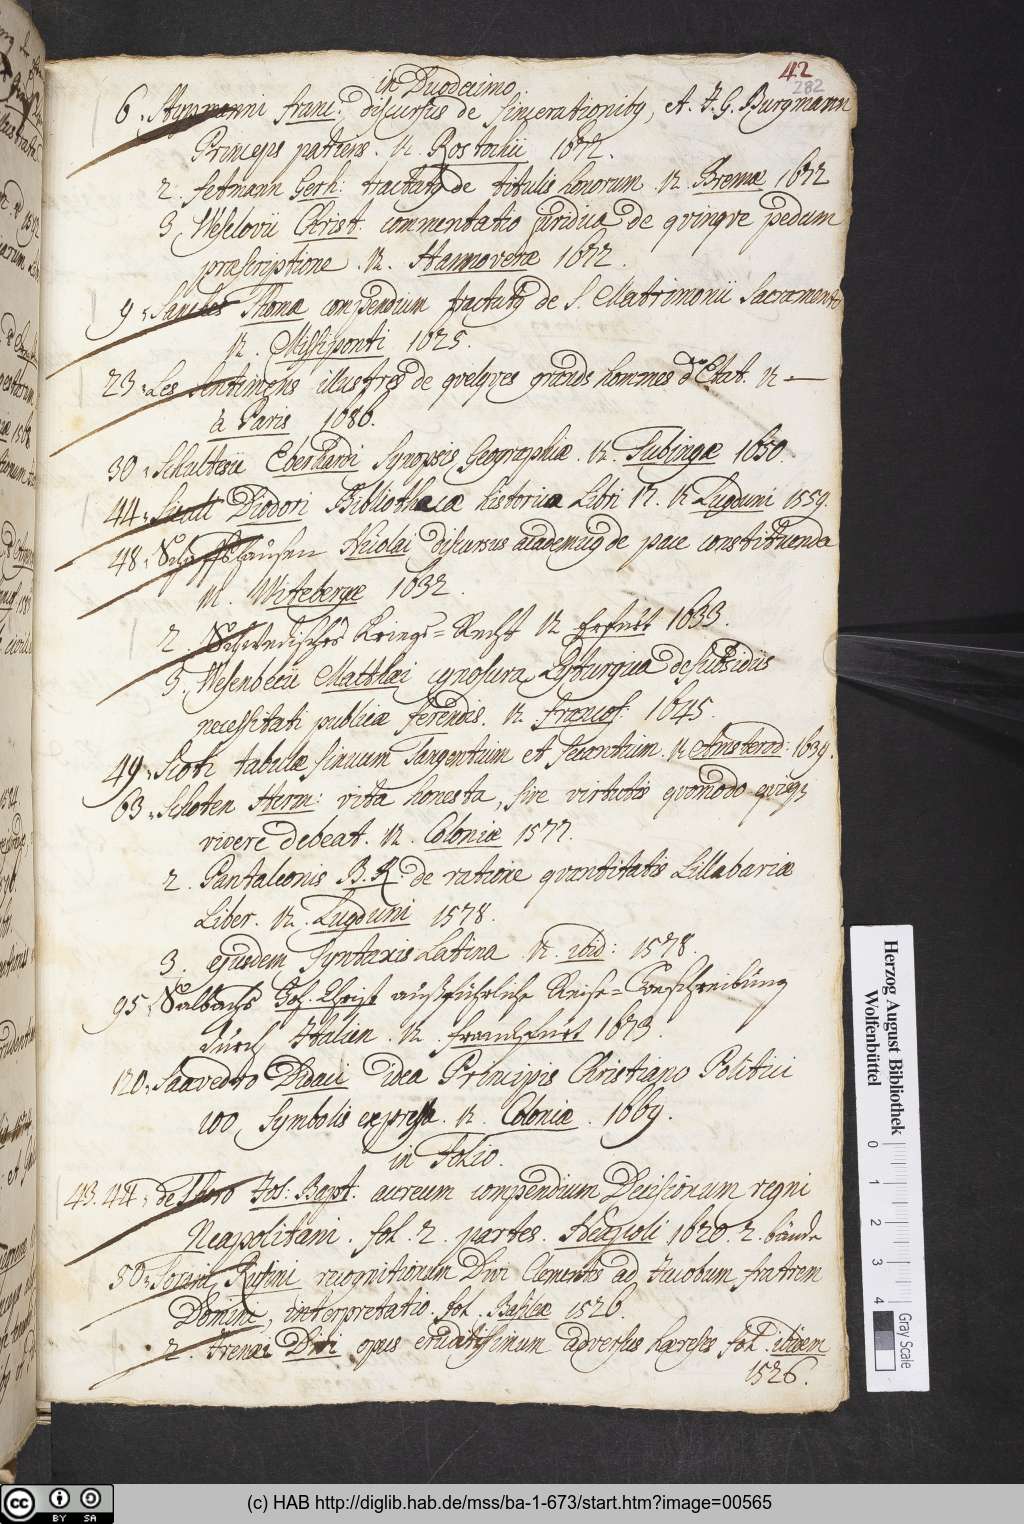 42
282
in Duodecimo.
6. Stypmanni Franc: discursus de sincerationibq, et J. G. Burgmann
Princeps patiens. 12. Rostochii 1677.
2. Feltmann Gerh: tractatq de titulis honorum. 12. Bremæ 1672
3. Weselovii Christ: commentatio juridica de qvinqve pedum
præscriptione. 12. Hannoveræ 1677.
9. Sanches Thomæ compendium tractatq de S. Matrimonii Sacramento
12. Mussiponti 1625.
23. Les Sentimens illustres de qvelqves grands hommes d'Etat. 12 —
à Paris 1686.
30. Schultesii Eberhardi Synopsis Geographiæ. 12. Tubingæ 1650.
44. Siculi Diodori Bibliothecæ historicæ Libri 12. Lugduni 1559.
48. Schaffshausen Nicolai discursus academicq de pace constituenda
12. Witebergæ 1632.
2. Schwedisches Kriegs=Recht 12 Erfurt 1633.
3. Wesenbecii Matthæi cynosura Liturgica de subsidiis
necessitati publicæ ferendis. 12. Francof: 1645.
49. Scoti tabulæ sinuum Tangentium et secantium. 12 Amsterod: 1639.
63. Schoten Herm: vita honesta, sive virtutis qvomodo qvisq3
vivere debeat. 12. Coloniæ 1577.
2. Pantaleonis B. R. de ratione qvantitatis Sillabariæ
Liber. 12. Lugduni 1578.
3. ejusdem Syntaxis Latina 12. ibid: 1578.
95. Salbachs Joh. Christ außführliche Reise=Beschreibung
durch Italien. 12. Franckfurt 1673.
120. Saavedro Didaci idea Principis Christiano Politici
100 Symbolis expressa. 12. Coloniæ. 1669.
in Folio.
43. 44. de Thoro Joh: Bapt. aureum compendium Decisionum regni
Neapolitani. fol. 2. partes. Neapoli 1620. 2. bände
50. Rufini recognitionum Divi Clementis ad Jacobum fratrem
Domini, interpretatio. fol. Basileæ 1526.
2. Irenæi Divi opus eruditissimum adversus hæreses fol. ibidem
1526.
Herzog August Bibliothek
Wolfenbüttel
0 1 2 3 4
Gray Scale
cc BY SA
(c) HAB http://diglib.hab.de/mss/ba-1-673/start.htm?image=00565